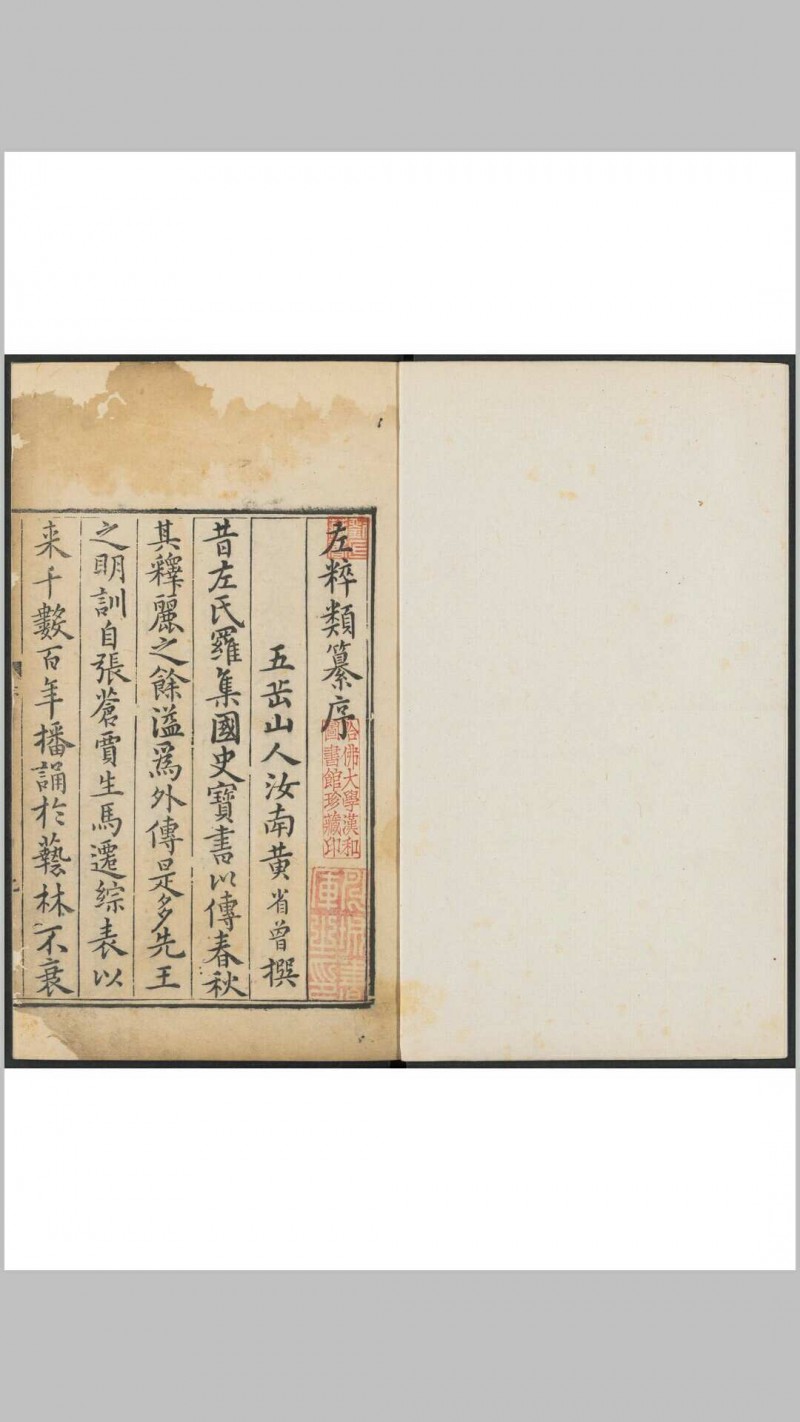 左粹類纂序
五岳山人汝南黃省曾撰
昔左氏羅集國史寶書以傳春秋
其釋麗之餘溢爲外傳是多先王
之明訓自張蒼賈生馬遷綜表以
来千數百年播誦於藝林不衰
哈佛大學漢和
圖書館珍藏印